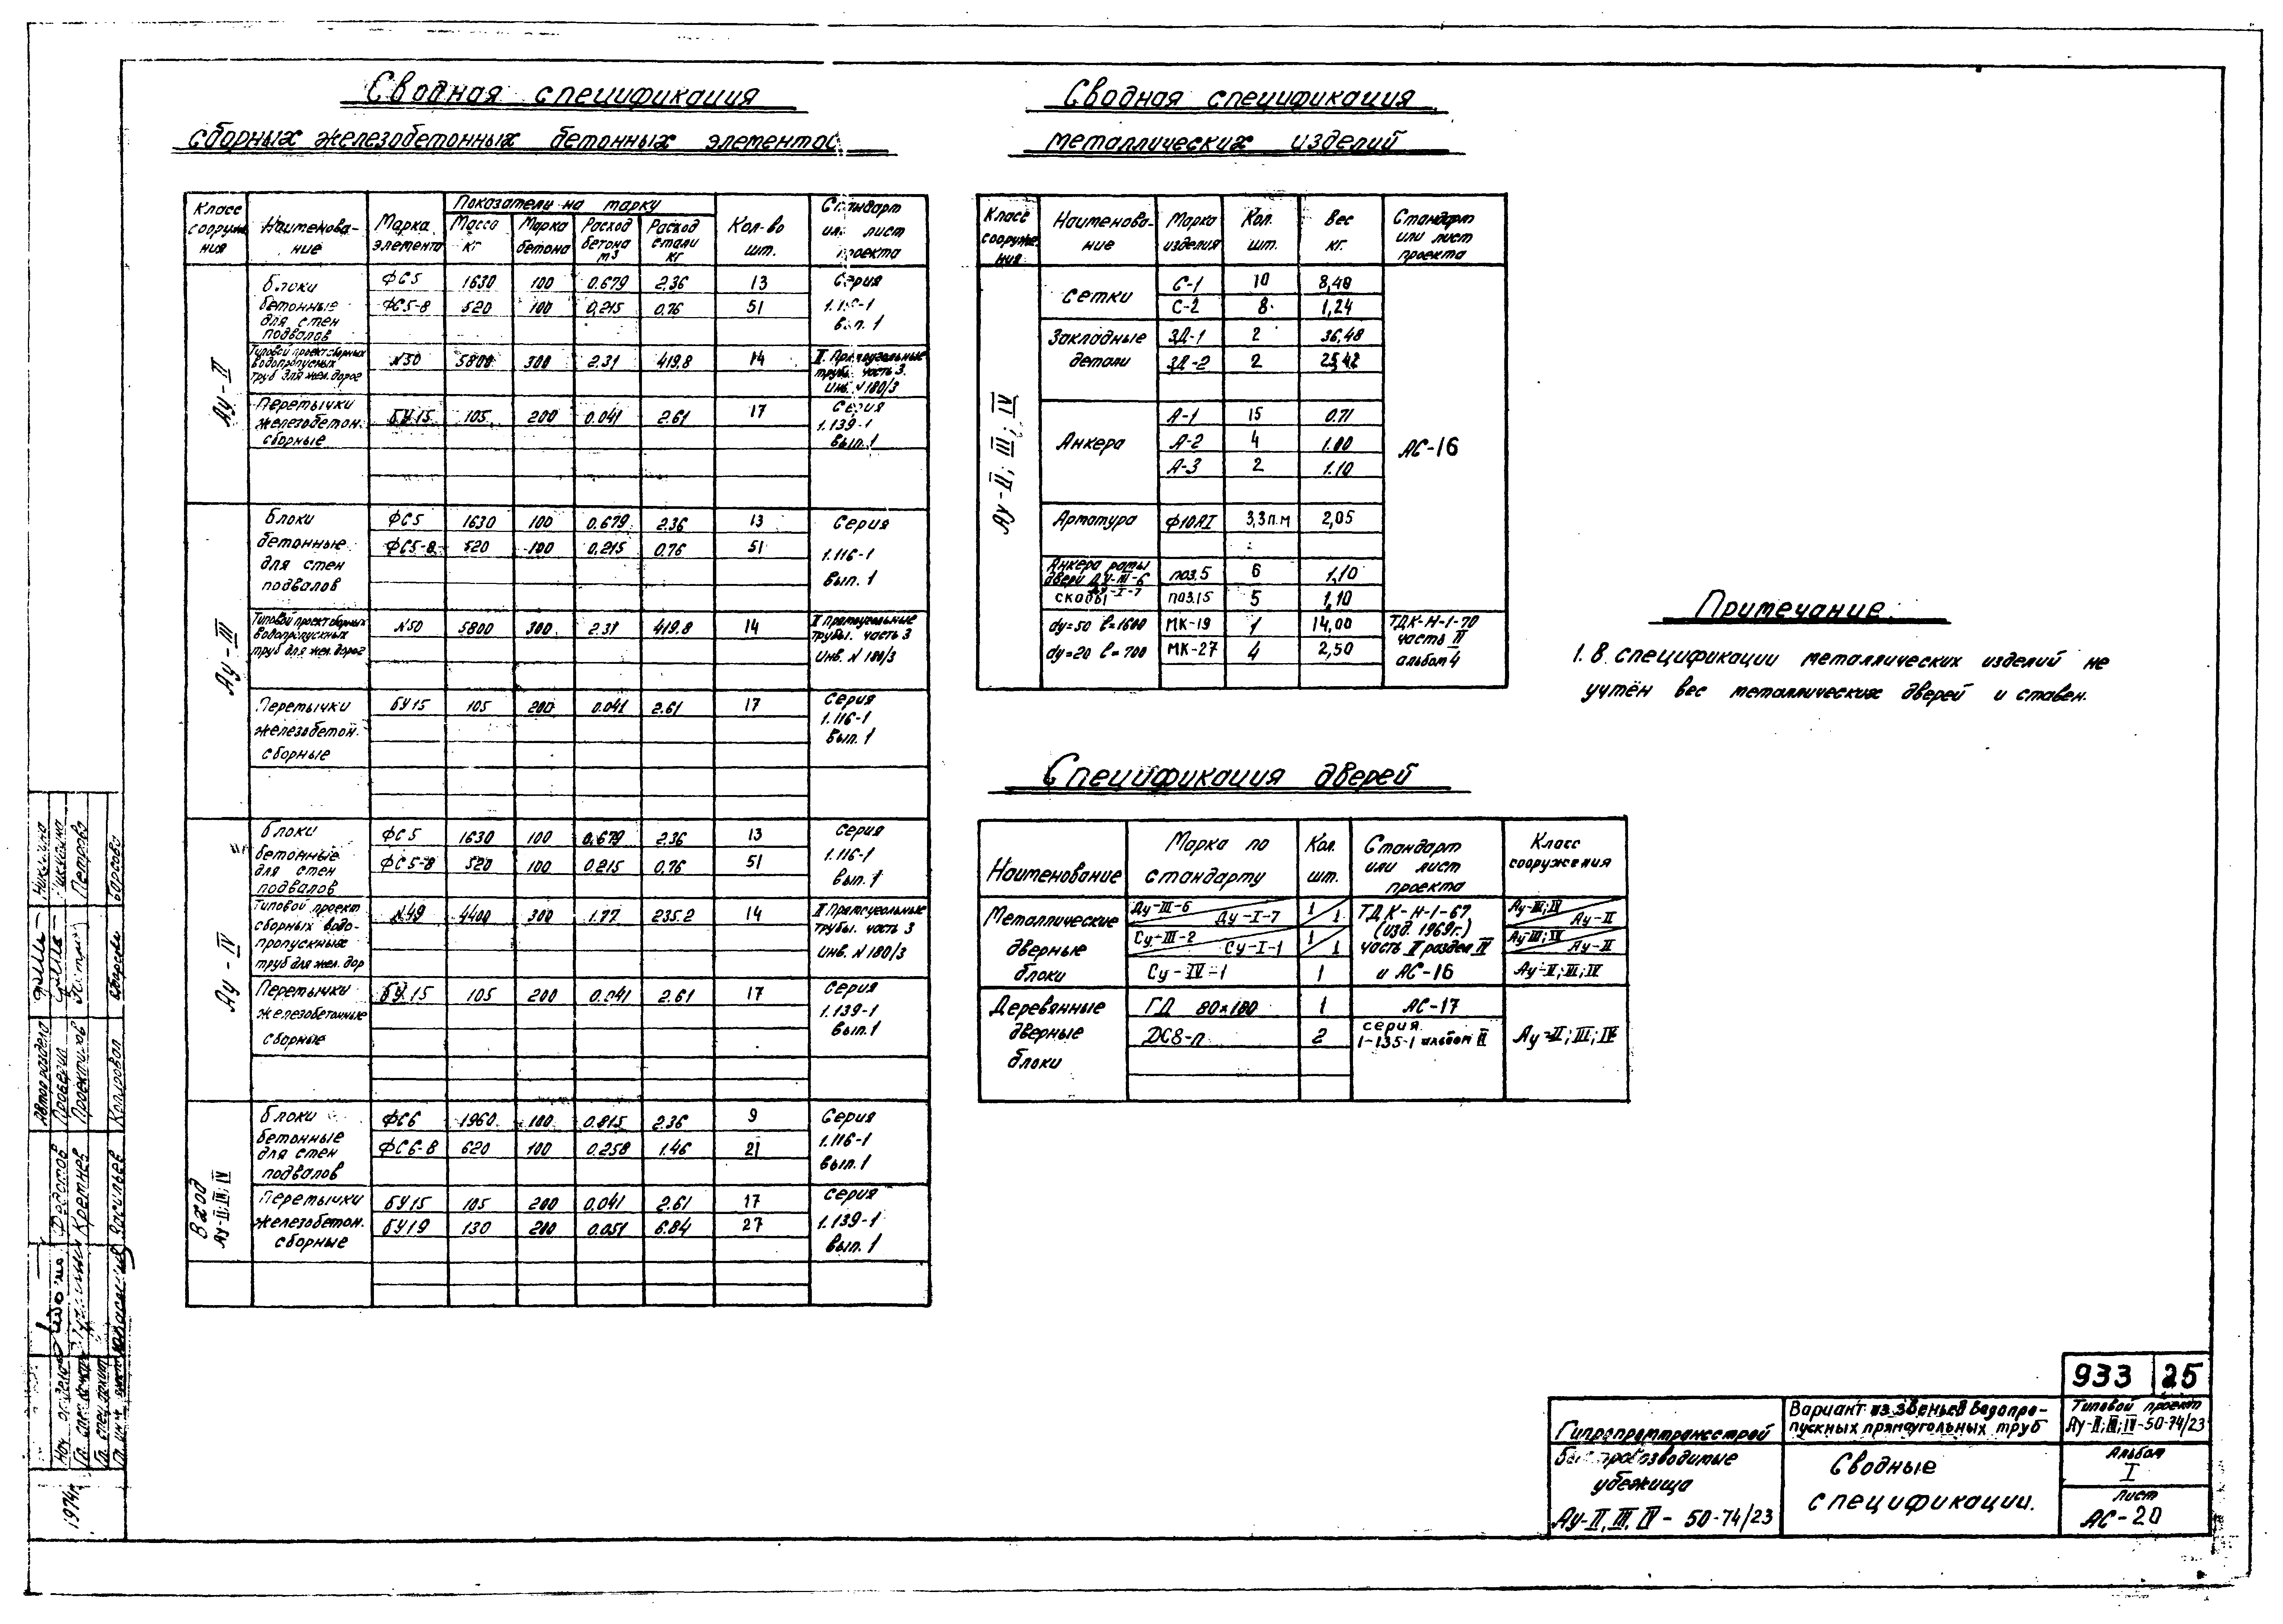 Сводная спецификация
сборных железобетонных бетонных элементов
Класс сооруже-ния | Наименова-ние | Марка элемента | Показатели на марку | Кол-во шт. | Стандарт или лист проекта
Масса кг | Марка бетона | Расход бетона м³ | Расход стали кг
Ау-II
Блоки бетонные для стен подвалов | ФС5 | 1630 | 100 | 0.679 | 2.36 | 13 | Серия
ФС5-8 | 520 | 100 | 0,215 | 0.76 | 51 | вып. 1
Типовой проект сборных водопропускных труб для жел. дорог | №50 | 5800 | 300 | 2.31 | 419.8 | 14 | II. Прямоугольные трубы. часть 3. Инв. № 180/3
Перемычки железобетон. сборные | БУ15 | 105 | 200 | 0.041 | 2.61 | 17 | Серия 1.139-1 вып. 1
Ау-III
Блоки бетонные для стен подвалов | ФС5 | 1630 | 100 | 0.679 | 2.36 | 13 | Серия
ФС5-8 | 520 | 100 | 0,215 | 0.76 | 51 | 1.116-1 вып. 1
Типовой проект сборных водопропускных труб для жел. дорог | №50 | 5800 | 300 | 2.31 | 419.8 | 14 | II Прямоугольные трубы. часть 3 Инв. № 180/3
Перемычки железобетон. сборные | БУ15 | 105 | 200 | 0.041 | 2.61 | 17 | Серия 1.116-1 Вып. 1
Ау-IV
Блоки бетонные для стен подвалов | ФС5 | 1630 | 100 | 0.679 | 2.36 | 13 | Серия
ФС5-8 | 520 | 100 | 0.215 | 0.76 | 51 | 1.116-1 вып. 1
Типовой проект сборных водо-пропускных труб для жел. дор | №49 | 4400 | 300 | 1.77 | 235.2 | 14 | II Прямоугольные трубы. часть 3 Инв. № 180/3
Перемычки железобетонные сборные | БУ15 | 105 | 200 | 0.041 | 2.61 | 17 | Серия 1.139-1 вып. 1
Вход Ау-II; III; IV
Блоки бетонные для стен подвалов | ФС6 | 1960 | 100 | 0.815 | 2.36 | 9 | Серия
ФС6-8 | 620 | 100 | 0.258 | 1.46 | 21 | 1.116-1 вып. 1
Перемычки железобетон. сборные | БУ15 | 105 | 200 | 0.041 | 2.61 | 17 | Серия
БУ19 | 130 | 200 | 0.051 | 6.84 | 27 | 1.139-1 вып. 1
Сводная спецификация
металлических изделий
Класс сооруже-ния | Наименова-ние | Марка изделия | Кол. шт. | Вес кг. | Стандарт или лист проекта
Ау-II; III; IV
Сетки | С-1 | 10 | 8,40
С-2 | 8 | 1,24
Закладные детали | ЗД-1 | 2 | 36,48
ЗД-2 | 2 | 25,42
Анкера | А-1 | 15 | 0.71
А-2 | 4 | 1.00 | АС-16
А-3 | 2 | 1.10
Арматура | Ф10АI | 3,3 п.м | 2,05
Анкера рамы двери ДУ-III-6 | поз.5 | 6 | 1,10
ДУ-I-7
скобы | поз.15 | 5 | 1,10
dу=50 ℓ=1600 | МК-19 | 1 | 14,00 | ТДК-Н-1-70
dу=20 ℓ=700 | МК-27 | 4 | 2,50 | часть II альбом 4
Примечание:
1. В спецификации металлических изделий не
учтён вес металлических дверей и ставен.
Спецификация дверей
Наименование | Марка по стандарту | Кол. шт. | Стандарт или лист проекта | Класс сооружения
Металлические дверные блоки | Ду-III-6 / Ду-I-7 | 1 / 1 | ТДК-Н-1-67 (изд. 1969г.) | Ау-III; IV / Ау-II
Су-III-2 / Су-I-1 | 1 / 1 | часть II раздел IV | Ау-III; IV / Ау-II
Су-IV-1 | 1 | и АС-16 | Ау-II; III; IV
Деревянные дверные блоки | ГД 80×180 | 1 | АС-17
ДС8-п | 2 | серия 1-135-1 альбом II | Ау-II; III; IV
933 | 25
Гипропромтрансстрой
Вариант из звеньев водопро-
пускных прямоугольных труб
Типовой проект
Ау-II; III; IV-50-74/23
убежища
Ау-II, III, IV - 50-74/23
Сводные
спецификации.
Альбом
I
Лист
АС-20
Автор раздела
Проверил
Проектиров
Петрова
Копировал
Борсова
Федотов
Кретнев
Васильев
1974г.